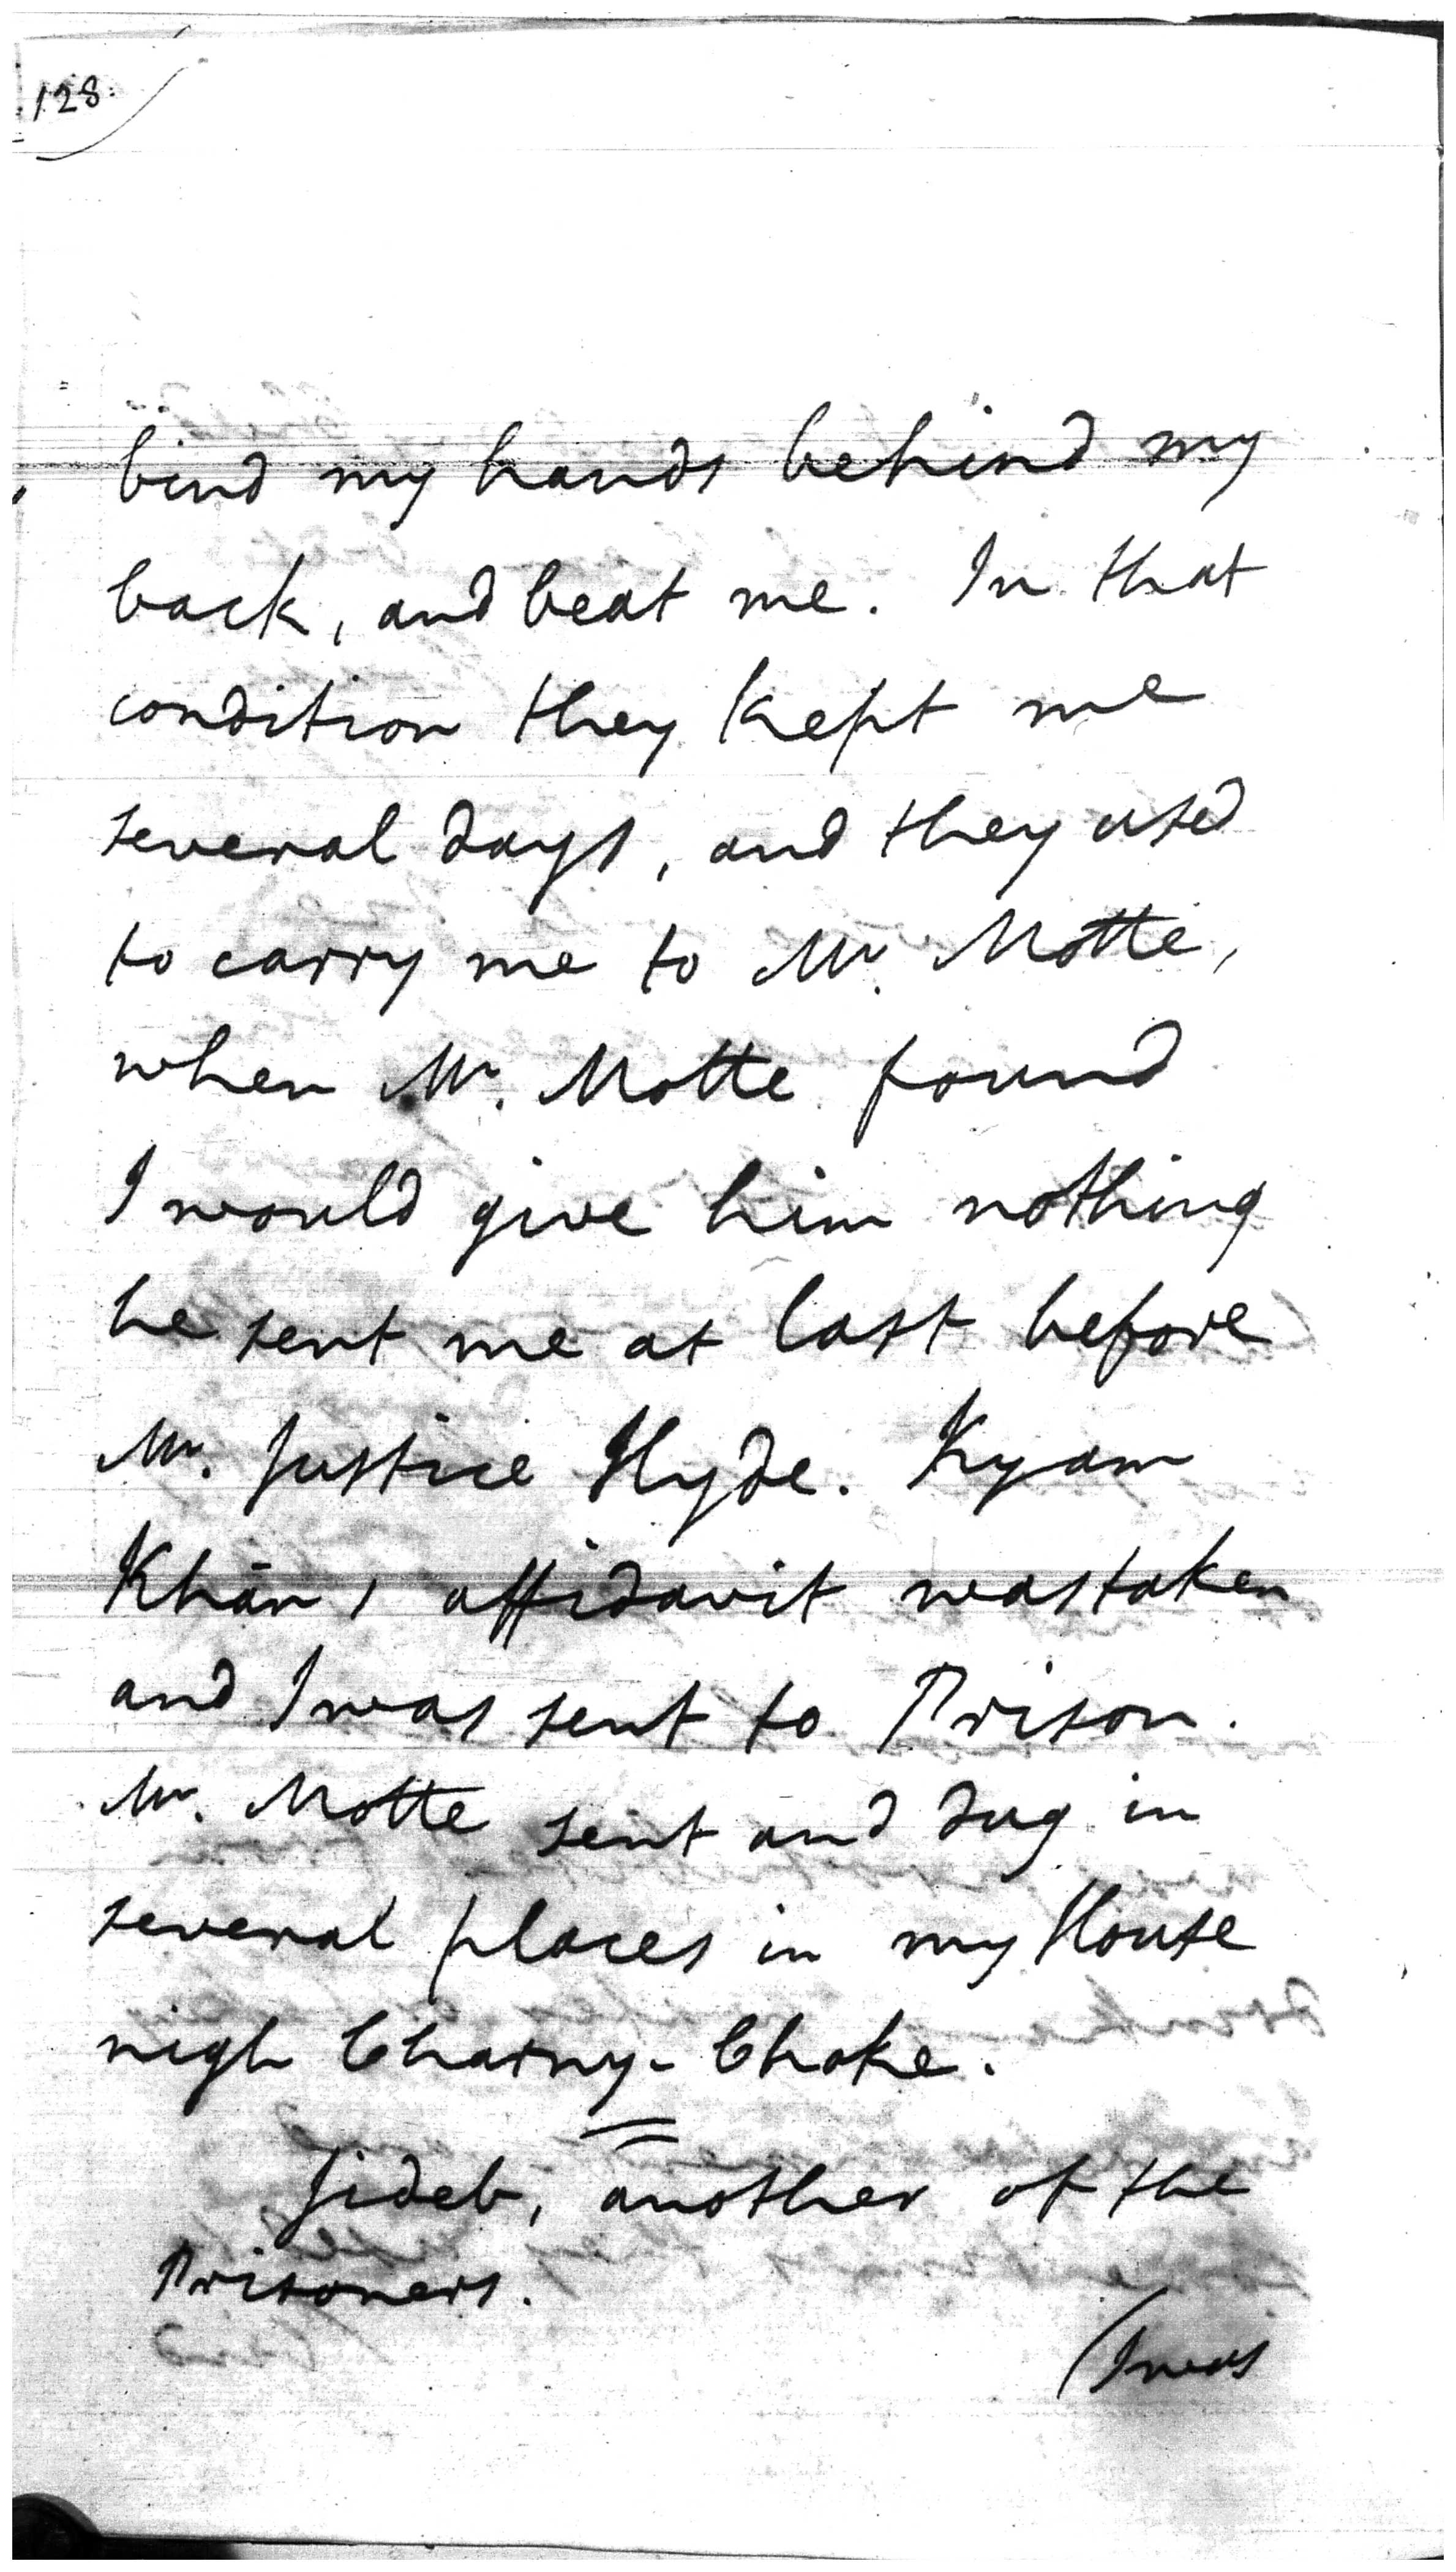 128.
bind my hands behind my
back, and beat me. In that
condition they kept me
several days, and they used
to carry me to Mr. Motte,
when Mr. Motte found
I would give him nothing
he sent me at last before
Mr. Justice Hyde. Kyam
Khān's affidavit was taken
and I was sent to Prison.
Mr. Motte sent and dug in
several places in my House
nigh Charny-Choke.
Jideb, another of the
Prisoners.
(I was